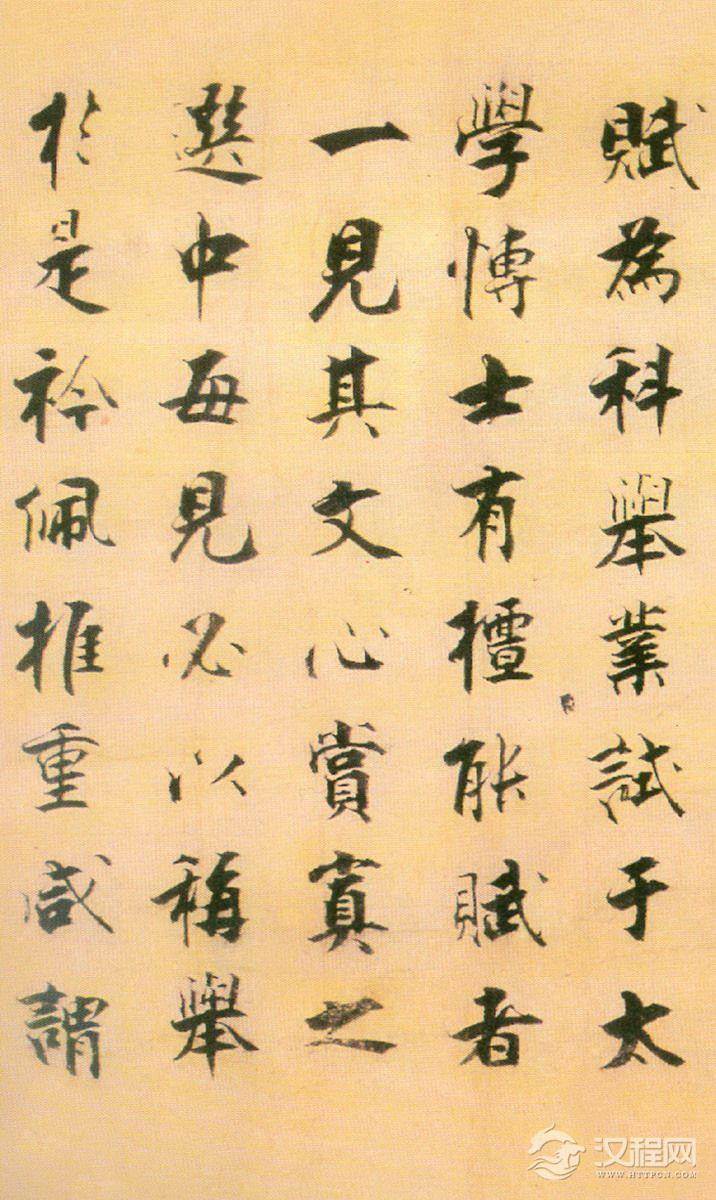 賦為科舉業試于太
學博士有檀能賦者
一見其文心賞寘之
選中每見必以稱舉
於是衿佩推重咸謂
汉程网
WWW.HTTPCN.COM